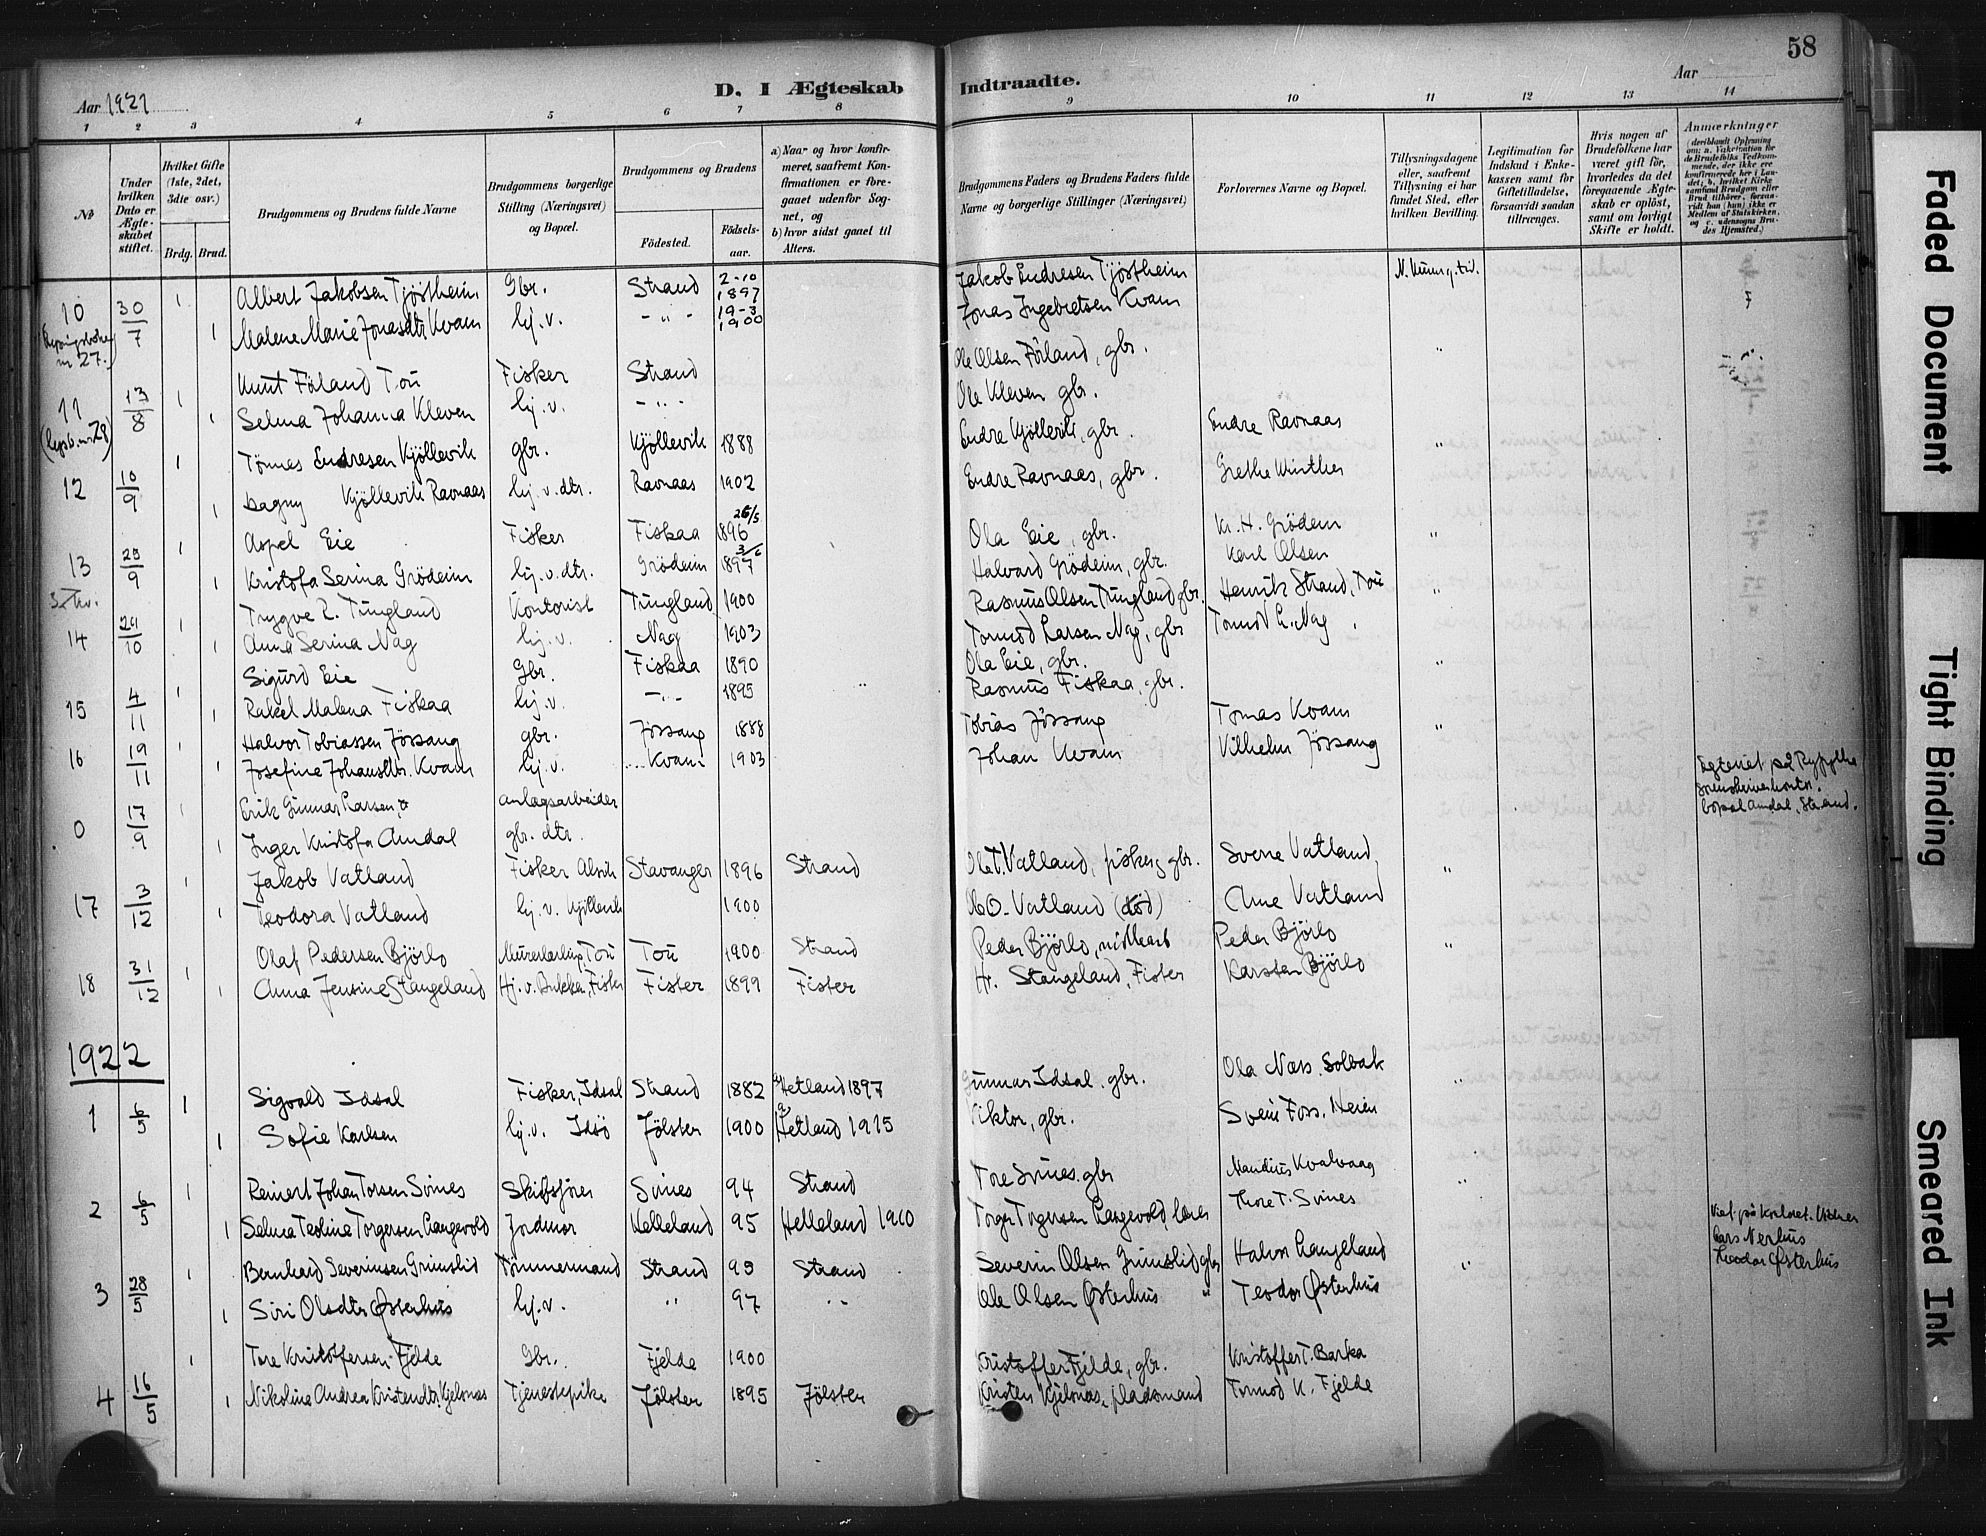 58
Aar 1921
D. I Ægteskab Indtraadte.
Aar
1 2 3 4 5 6 7 8 9 10 11 12 13 14
№
Under hvilken Dato er Ægteskabet stiftet.
Hvilket Gifte (1ste, 2det, 3die osv.)
Brdg. Brud.
Brudgommens og Brudens fulde Navne
Brudgommens borgerlige Stilling (Næringsvei) og Bopæl.
Brudgommens og Brudens
Födested.
Födselsaar.
a) Naar og hvor konfirmeret, saafremt Konfirmationen er foregaaet udenfor Sognet, og
b) hvor sidst gaaet til Alters.
Brudgommens Faders og Brudens Faders fulde Navne og borgerlige Stillinger (Næringsvei)
Forlovernes Navne og Bopæl.
Tillysningsdagene eller, saafremt Tillysning ei har fundet Sted, efter hvilken Bevilling.
Legitimation for Indskud i Enkekassen samt for Giftetilladelse, forsaavidt saadan tiltrænges.
Hvis nogen af Brudefolkene har været gift för, hvorledes da det foregaaende Ægteskab er oplöst, samt om lovligt Skifte er holdt.
Anmærkninger
10 30/7 1 Albert Jakobsen Tjöstheim Gbr. Strand 2-10 1897 Jakob Endresen Tjöstheim
nr 27. 1 Malene Marie Jonasdtr Kvam hj.v. - " - 19-3 1900 Jonas Ingebretsen Kvam
11 13/8 1 Knut Föland Tou Fisker Strand Ole Olsen Förland, gbr. "
1 Selma Johanna Kleven hj.v. - " - Ole Kleven gbr.
12 10/9 1 Tönnes Endresen Kjöllevik gbr. Kjöllevik 1888 Endre Kjöllevik, gbr. Endre Ravnaas "
1 Dagny Kjöllevik Ravnaas hj.v.dtr. Ravnaas 1902 Endre Ravnaas, gbr. Grethe Winther
13 1 Aspel Eie Fisker Fiskaa 1896 Ola Eie, gbr. Kr. H. Grödem "
1 Kristofa Serina Grödeim hj.v.dtr. Grödeim 3/6 1897 Halvard Grödeim, gbr. Karl Olsen
14 29/10 1 Trygve R. Tungland Kontorist Tungland 1900 Rasmus Olsen Tungland gbr. Henrik Strand, Tou "
1 Anna Serina Nag hj.v. Nag 1903 Tormod Larsen Nag, gbr Tormod L. Nag
15 4/11 1 Sigurd Eie Gbr. Fiskaa 1890 Ola Eie, gbr. "
1 Rakel Malena Fiskaa hj.v. - " - 1895 Rasmus Fiskaa, gbr.
16 19/11 1 Halvor Tobiassen Jössang gbr. Jössang 1888 Tobias Jössang Tomas Kvam "
1 Josefine Johansdtr. Kvam hj.v. Kvam 1903 Johan Kvam Vilhelm Jössang
0 17/9 1 Erik Gunnar Larsen, & anlagsarbeider
1 Inger Kristofa Amdal gbr. dtr. bopæl Amdal, Strand.
17 3/12 1 Jakob Vatland Fisker Stavanger 1896 Strand Ole T. Vatland, fisker, gbr. Sverre Vatland "
1 Teodora Vatland hj.v. Kjöllevik 1900 Ole O. Vatland (död) Arne Vatland
18 31/12 1 Olaf Pedersen Björlo Tou Tou 1900 Strand Peder Björlo Peder Björlo "
1 Anna Jensine Stangeland Hj.v. Fister Fister 1899 Fister Stangeland, Fister Karsten Björlo
1922
1 6/5 1 Sigvald Idsal Fisker, Idsal Strand 1882 Hetland 1897 Gunnar Idsal, gbr. Ola Næss. Solbak "
1 Sofie Karlsen hj.v. Idsö Jölster 1900 Hetland 1915 Viktor, gbr. Svein Foss. Heien
2 6/5 1 Reinert Johan Torsen Svines Skibsförer Svines 94 Strand Tore Svines gbr Mandius Kvalvaag "
1 Selma Teoline Torgersen Langevold Jordmor Helleland 95 Helleland 1910 Torger Torgersen Langevold lærer Thore T. Svines
3 28/5 1 Bernhard Severinsen Grimslid Tömmermand Strand 95 Strand Severin Olsen Grimslid gbr Halvor Langeland " Lars Nerhus
1 Siri Olsdtr Østerhus hj.v. " 97 " Ole Olsen Østerhus " Teodor Østerhus Teodor Østerhus
4 16/5 1 Tore Kristoffersen Fjelde Gbr. Fjelde 1900 Kristoffer Fjelde, gbr. Kristoffer T. Barka
1 Nikoline Andrea Kristendtr Kjelsnæs Tjenestepike Jölster 1895 Jölster Kristen Kjelsnæs, pladsmand Tormod K. Fjelde
Faded Document
Tight Binding
Smeared Ink